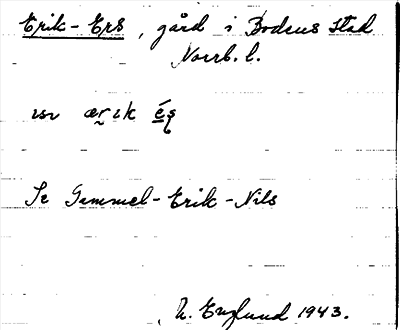 Erik-Ers, gård i Bodens stad
Norrb. l.
Se Gammel-Erik-Nils
N. Englund 1943.